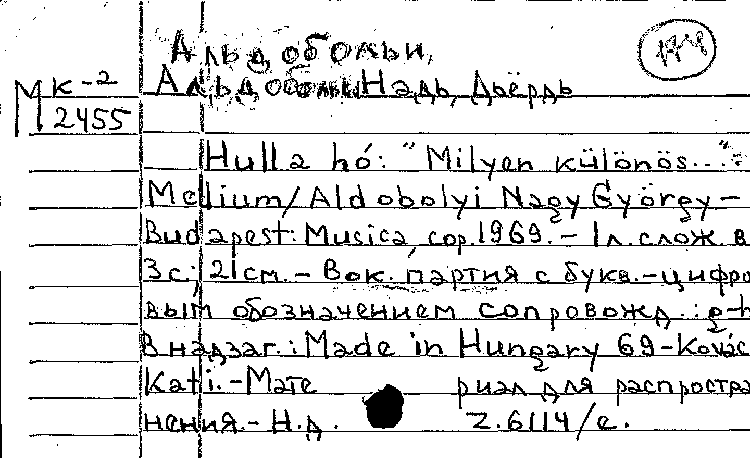 Альдобольи,
МК-2 Альдобольи Надь, Дьёрдь
2455
Hulla hó: "Milyen különös..."
Melium/Aldobolyi Nagy György -
Budapest: Musica, cop. 1969. - 1 л. слож. в
3с.; 21см. - Вок. партия с букв.-цифро
вым обозначением сопровожд.: g-h
В надзаг.: Made in Hungary 69 - Kovác
Kati. - Мате риал для распростра
нения. - Н.д. Z.6114/e.